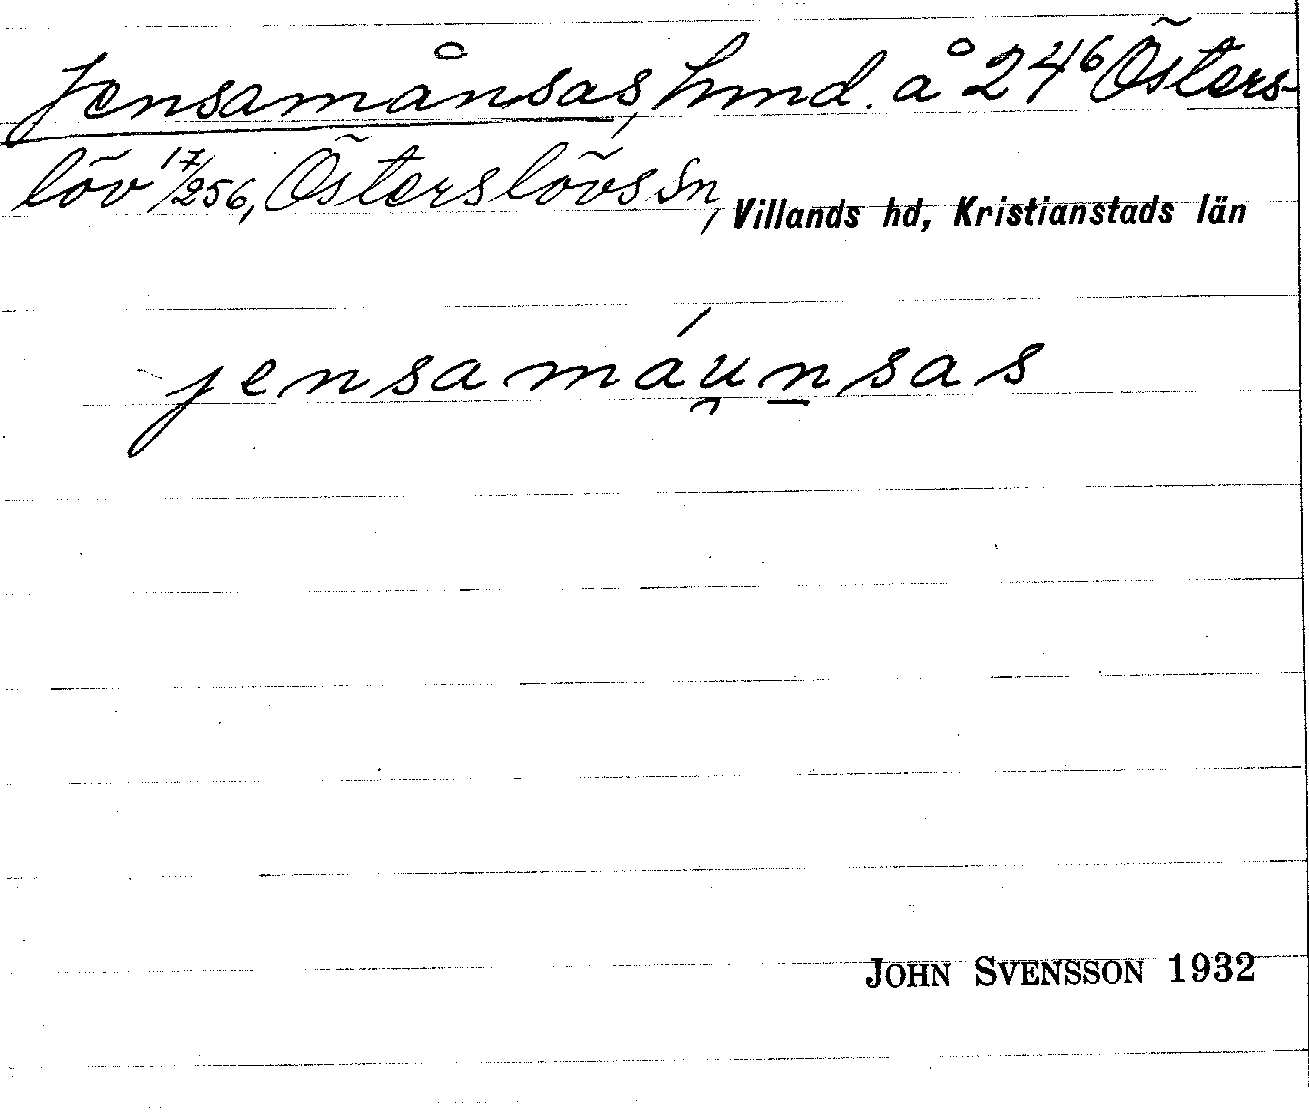 Jensamånsas, hmd. å 24⁶ Österslöv
löv 17/256, Österslövs sn, Villands hd, Kristianstads län
jensamáu̯n̲sas
JOHN SVENSSON 1932